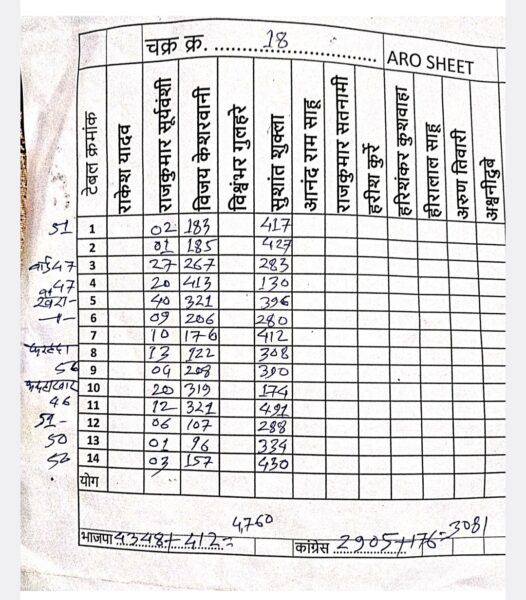 चक्र क्र. 18
ARO SHEET
टेबल क्रमांक राकेश यादव राजकुमार सूर्यवंशी विजय केशरवानी विश्वंभर गुलहरे सुशांत शुक्ला आनंद राम साहू राजकुमार सतनामी हरीश कुर्रे हरिशंकर कुशवाहा हीरालाल साहू अरुण तिवारी अश्वनी दुबे
51 1 02 183 417
2 01 185 427
वार्ड 47 3 27 267 283
47 4 20 413 130
5 40 321 396
6 09 206 280
7 10 176 412
8 13 122 308
56 9 04 208 390
10 20 319 174
46 11 12 321 491
51- 12 06 107 288
50 13 01 96 334
14 03 157 430
योग
भाजपा 4348+412= 4,760
कांग्रेस 2905+176=3081